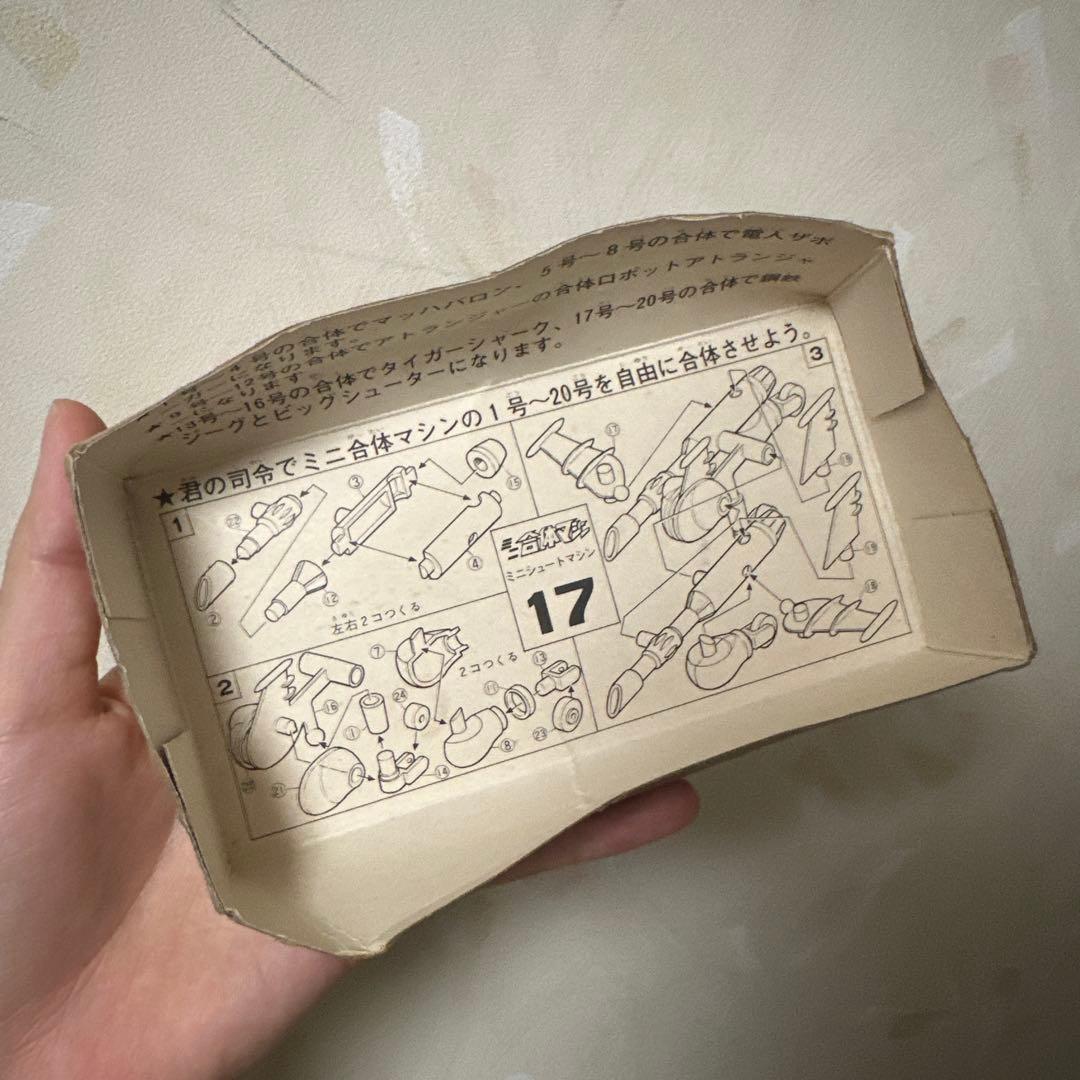 号の合体でマッハバロン、 5号〜8号の合体で電人ザボ
ーになります。
12号の合体でアトランジャーの合体ロボットアトランジャ
になります。
★13号〜16号の合体でタイガーシャーク、17号〜20号の合体で鋼鉄
ジーグとビッグシューターになります。
★君の司令でミニ合体マシンの1号〜20号を自由に合体させよう。
1
22
3
15
2
12
4
左右2コつくる
ミニ合体マシン
ミニシュートマシン
17
2
7
2コつくる
16
24
1
11
13
21
14
8
23
3
17
19
19
18